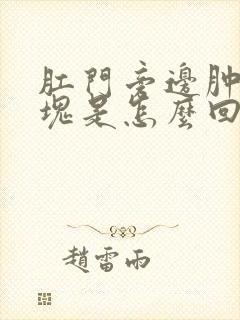 肛門旁邊肿
塊是怎麼回
趙雷雨